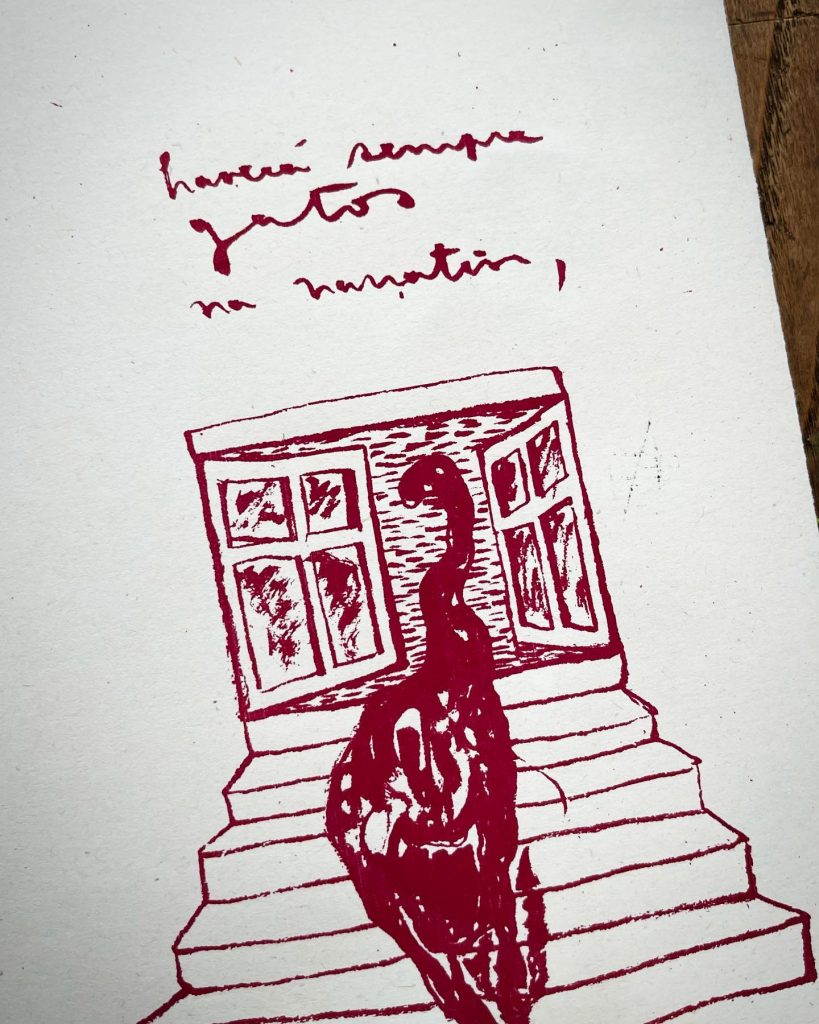 haverá sempre
gatos
na narrativa,